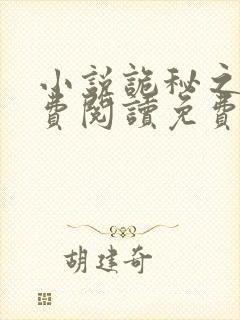 小説詭秘之
費閱讀免費
胡建奇